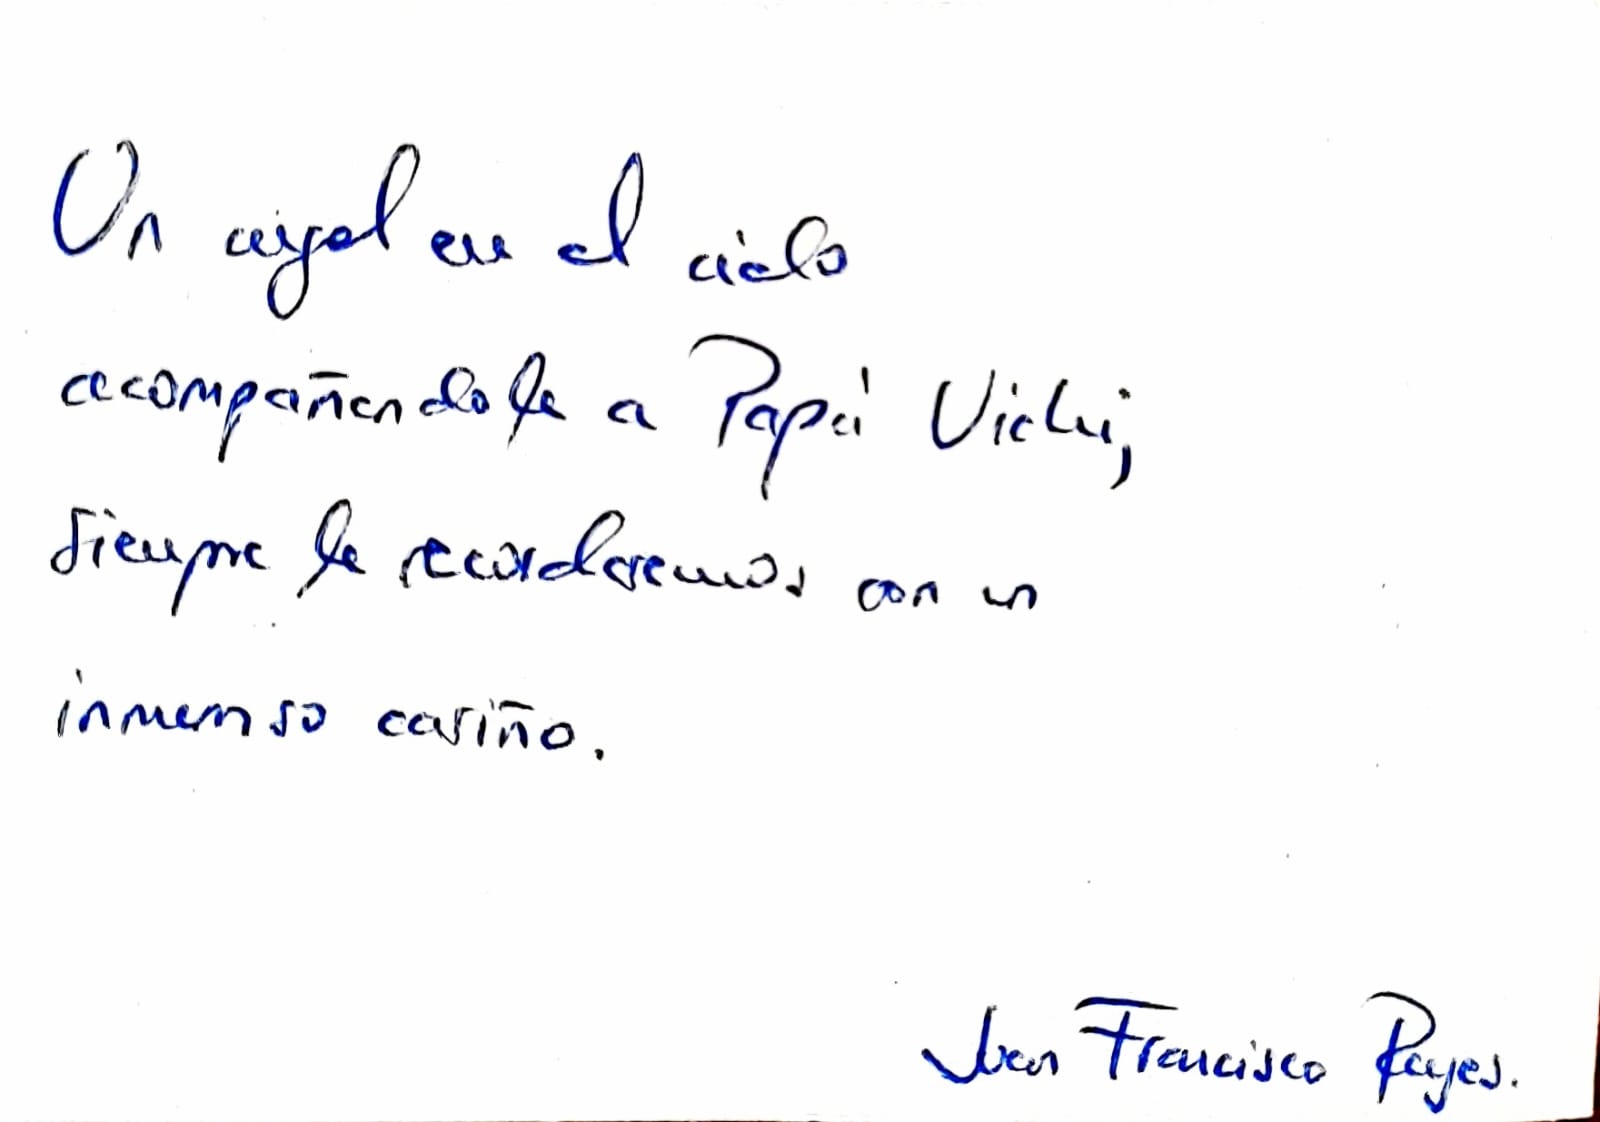 Un angel en el cielo
acompañandole a Papá Vichi,
siempre le recordaremos con un
inmenso cariño.
Juan Francisco Reyes.